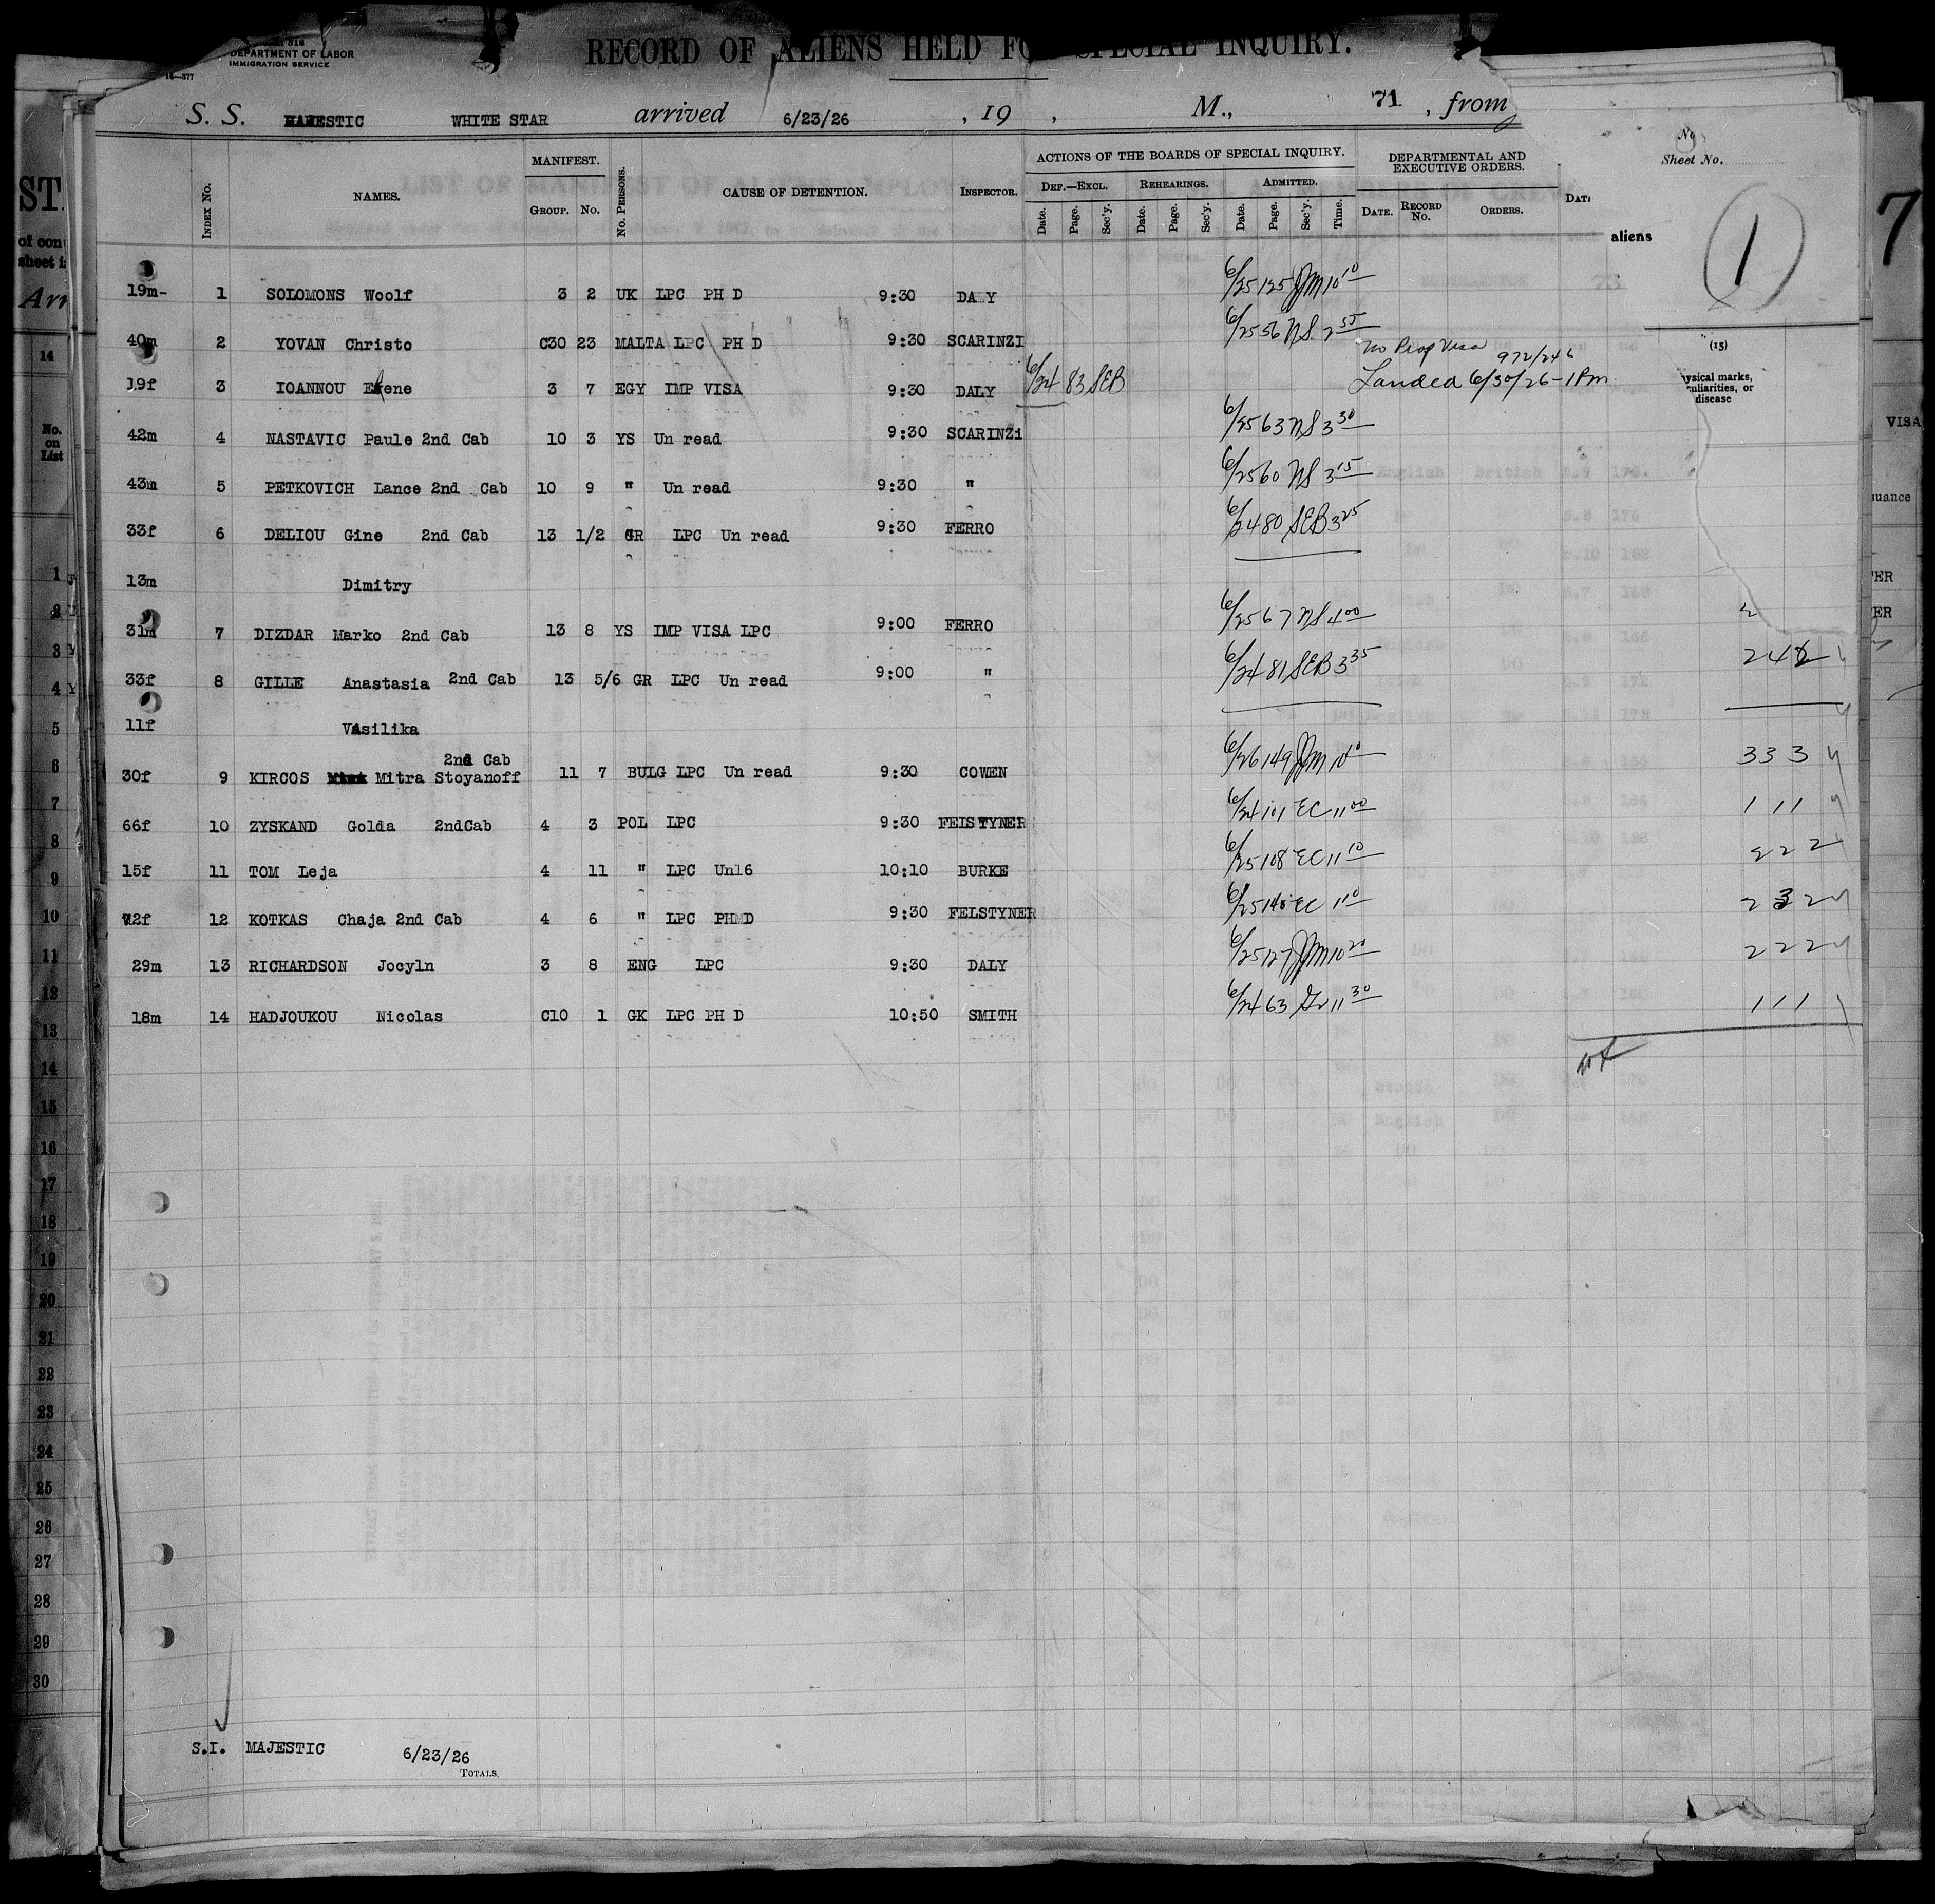 DEPARTMENT OF LABOR
IMMIGRATION SERVICE
RECORD OF ALIENS HELD FOR SPECIAL INQUIRY.
S. S. MAJESTIC WHITE STAR arrived 6/23/26 , 19 , M., 71 , from
No
Sheet No.
1
aliens
(15)
ysical marks,
culiarities, or
disease
INDEX No.
NAMES.
MANIFEST.
GROUP. No.
No. PERSONS.
CAUSE OF DETENTION.
INSPECTOR.
ACTIONS OF THE BOARDS OF SPECIAL INQUIRY.
DEF.—EXCL. REHEARINGS. ADMITTED.
Date. Page. Sec'y. Date. Page. Sec'y. Date. Page. Sec'y. Time.
DEPARTMENTAL AND
EXECUTIVE ORDERS.
DATE. RECORD No. ORDERS.
19m- 1 SOLOMONS Woolf 3 2 UK LPC PH D 9:30 DALY 6/25 125 JM 10 10
40m 2 YOVAN Christo C30 23 MALTA LPC PH D 9:30 SCARINZI 6/25 56 NS. 2 55
No Prop Visa 972/246
19f 3 IOANNOU Erene 3 7 EGY IMP VISA 9:30 DALY 6/24 83 SEB Landed 6/30/26-1Pm
42m 4 NASTAVIC Paule 2nd Cab 10 3 YS Un read 9:30 SCARINZi 6/25 63 NS 3 30
43m 5 PETKOVICH Lance 2nd Cab 10 9 " Un read 9:30 " 6/25 60 NS 3 15
33f 6 DELIOU Gine 2nd Cab 13 1/2 GR LPC Un read 9:30 FERRO 6/24 80 SEB 3 25
13m Dimitry
31m 7 DIZDAR Marko 2nd Cab 13 8 YS IMP VISA LPC 9:00 FERRO 6/25 67 NS 4 00
33f 8 GILLE Anastasia 2nd Cab 13 5/6 GR LPC Un read 9:00 " 6/24 81 SEB 3 35
11f Vasilika
2nd Cab
30f 9 KIRCOS Mitra Stoyanoff 11 7 BULG LPC Un read 9:30 COWEN 6/26 149 JM 10 10 333
66f 10 ZYSKAND Golda 2ndCab 4 3 POL LPC 9:30 FEISTYNER 6/24 101 EC 11 00 111
15f 11 TOM Leja 4 11 " LPC Un16 10:10 BURKE 6/25 108 EC 11 10 222
72f 12 KOTKAS Chaja 2nd Cab 4 6 " LPC PHMD 9:30 FELSTYNER 6/25 EC 232
29m 13 RICHARDSON Jocyln 3 8 ENG LPC 9:30 DALY 6/25 127 JM 10 20 222
18m 14 HADJOUKOU Nicolas C10 1 GK LPC PH D 10:50 SMITH 6/24 63 11 30 111
S.I. MAJESTIC 6/23/26
TOTALS.
ST
of con
sheet i
Arr
14
No.
on
List
1
2
3
4
5
6
7
8
9
10
11
12
13
14
15
16
17
18
19
20
21
22
23
24
25
26
27
28
29
30
7
VISA
suance